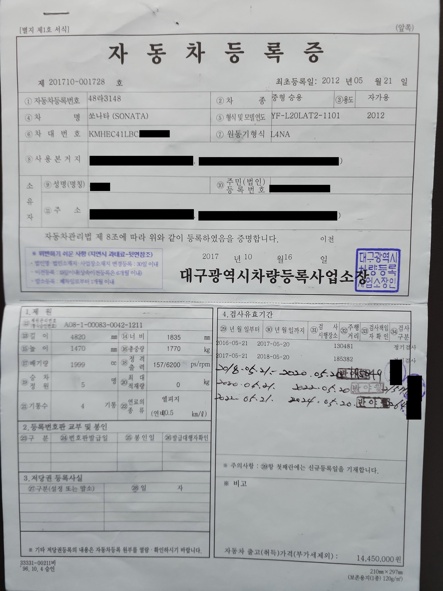 [별지 제1호 서식]
(앞쪽)
자동차등록증
제 201710-001728 호
최초등록일: 2012 년 05 월 21 일
① 자동차등록번호 48라3148 ② 차 종 중형 승용 ③ 용도 자가용
④ 차 명 쏘나타 (SONATA) ⑤ 형식 및 모델연도 YF-L20LAT2-1101 2012
⑥ 차 대 번 호 KMHEC41LBC ⑦ 원동기형식 L4NA
⑧ 사 용 본 거 지
소유자 ⑨ 성명(명칭) ⑩ 주민(법인)등록번호
⑪ 주 소
자동차관리법 제 8조에 따라 위와 같이 등록하였음을 증명합니다. 이전
2017 년 10 월 16 일
대구광역시차량등록사업소장
대구광역시
차량등록
사업소장인
1. 제 원
A08-1-00083-0042-1211
길 이 4820 mm 너 비 1835 mm
높 이 1470 mm 총중량 1770 kg
배기량 1999 cc 정격출력 157/6200 ps/rpm
승차정원 5 명 최대적재량 0 kg
기통수 4 기통 연료의종류 엘피지
(연비 10.5 km/ℓ)
2. 등록번호판 교부 및 봉인
구 분 번호판발급일 봉인일 발급대행자확인
3. 저당권 등록사실
구분(설정 또는 말소) 일 자
※ 기타 저당권등록의 내용은 자동차등록 원부를 열람·확인하시기 바랍니다.
4. 검사유효기간
년 월 일부터 년 월 일까지 검사시행장소 주행거리 검사책임자확인 검사구분
2016-05-21 2017-05-20 130481 정기검사
2017-05-21 2018-05-20 185382
2018-05-21 2020.05.20
2020.05.21. 2022.05.20
2022.05.21 2024.05.20.
※ 주의사항 : 항 첫째란에는 신규등록일을 기재합니다.
※ 비고
자동차 출고(취득)가격(부가세제외) : 14,450,000원
210㎜×297㎜
(보존용지(1종) 120g/㎡)